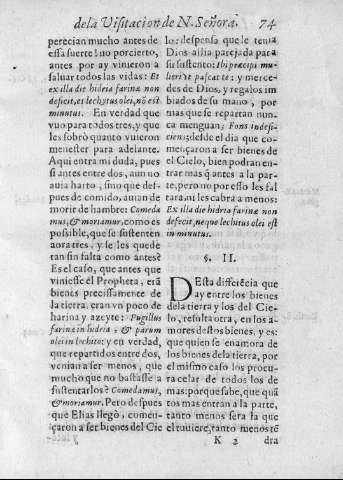 de la Visitacion de N. Señora. 74
perecian mucho antes de
essa suerte? no por cierto,
antes por ay vinieron a
saluar todos las vidas: Et
ex illa die hidria farinæ non
deficit, et lechytus olei, nō est
minutus. En verdad que
vuo para todos tres, y que
les sobrò quanto vuieron
menester para adelante.
Aqui entra mi duda, pues
si antes entre dos, aun no
auia harto, sino que des-
pues de comido, auian de
morir de hambre: Comeda
mus, & moriamur. como es
posible, que se sustenten
aora tres, y le les quede
tan sin falta como antes?
Es el caso, que antes que
viniesse el Propheta, erā
bienes precissamente de
la tierra, eran vn poco de
harina y azeyte: Pugillus
farinæ in hidria, & parum
olei in lechito: y en verdad,
que repartidos entre dos,
venian a ser menos, que
mucho que no bastasse a
sustentarlos? Comedamus,
& moriamur. Pero despues
que Elias llegò, comen-
çaron a ser bienes del Cie
lo: despensa que le tenia
Dios alli aparejada para
su sustento: Ibi præcipi mu-
lieri vt pascat te: y merce-
des de Dios, y regalos im
biados de su mano, por
mas que se repartan nun-
ca menguan: Fons indefi-
ciens: desde el dia que co-
mençaron a ser bienes de
el Cielo, bien podran en-
trar mas q̄ antes a la par-
te, pero no por esso les fal
tara, ni les cabra a menos:
Ex illa die hidria farinæ non
defecit, ne que lechitus olei est
in minutus.
§. II.
DEsta differēcia que
ay entre los bienes
de la tierra y los del Cie-
lo, resulta otra, en los a-
mores destos bienes, y es:
que quien se enamora de
los bienes de la tierra, por
el mismo caso los procu-
ra celar de todos los de
mas: porque sabe, que quā
tos mas entran a la parte,
tanto menos sera la que
el tuuiere, tanto menos tē
K 2 dra